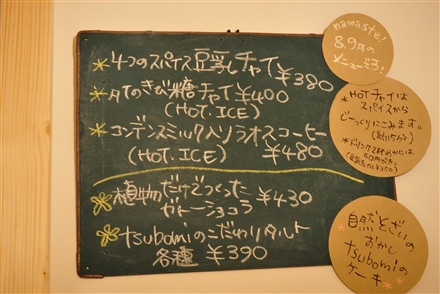 *4つのスパイス豆乳チャイ ¥380
*月でのきび糖チャイ ¥400
(HOT.ICE)
*コンデンスミルク入りラオスコーヒー
(HOT.ICE) ¥480
植物だけでつくった ¥430
ガトーショコラ
tsubomiのこだわりタルト
各種 ¥390
namaste!
8.9月の
メニューです!
*HOTチャイは
スパイスから
じっくりにこみます。
(約15分)
*ドリンク2杯めからは
50円びき。
自然とざいの
おかし
tsubomiの
ケーキ